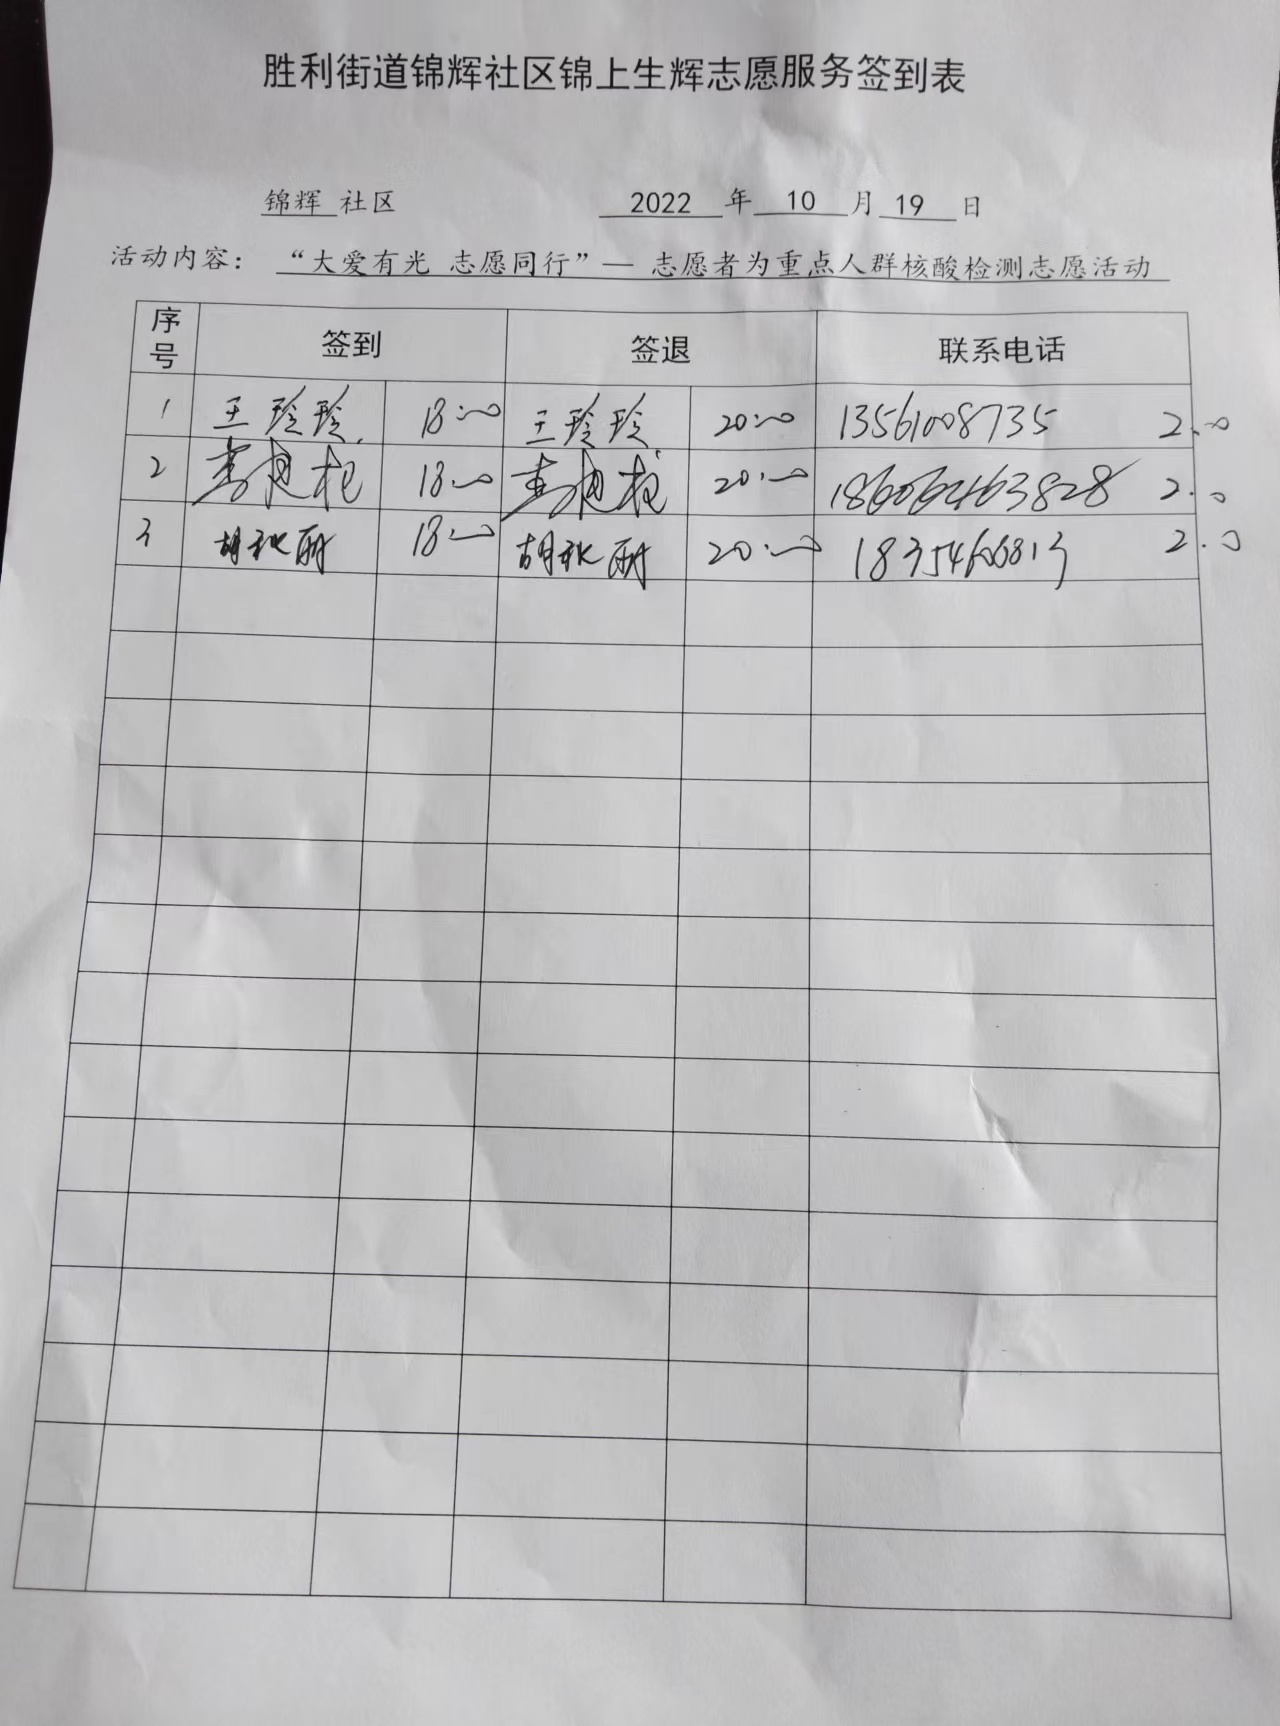 胜利街道锦辉社区锦上生辉志愿服务签到表
锦辉 社区 2022 年 10 月 19 日
活动内容： “大爱有光 志愿同行”— 志愿者为重点人群核酸检测志愿活动
序号 签到 签退 联系电话
1 王玲玲 18:00 王玲玲 20:00 13561008735 2.0
2 18:00 20:00 2.0
3 胡秋丽 18:00 胡秋丽 20:00 18354606813 2.0